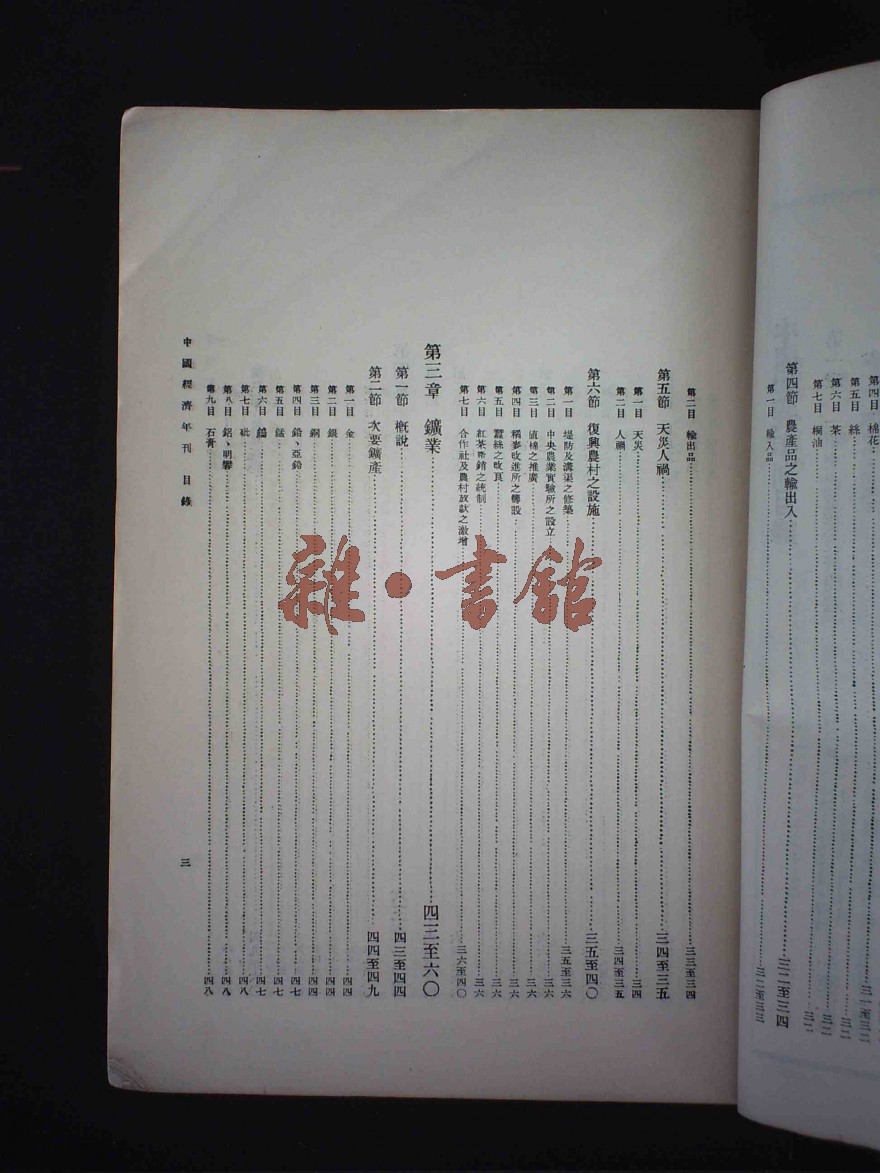 第四目 棉花
第五目 絲
第六目 茶 三二
第七目 桐油 三二
第四節 農產品之輸出入 三二至三四
第一目 輸入品 三二至三三
第二目 輸出品 三三至三四
第五節 天災人禍 三四至三五
第一目 天災 三四
第二目 人禍 三四至三五
第六節 復興農村之設施 三五至四〇
第一目 堤防及溝渠之修築 三五至三六
第二目 中央農業實驗所之設立 三六
第三目 植棉之推廣 三六
第四目 稻麥改進所之籌設 三六
第五目 蠶絲之改良 三六
第六目 紅茶運銷之統制 三六
第七目 合作社及農村放款之激增 三六至四〇
第三章 鑛業 四三至六〇
第一節 概說 四三至四四
第二節 次要鑛產 四四至四九
第一目 金 四四
第二目 銀 四四
第三目 銅 四四
第四目 鉛、亞鉛 四七
第五目 錳 四七
第六目 四七
第七目 砒 四八
第八目 鋁、明礬 四八
第九目 石膏 四八
中國經濟年刊 目錄
三
雜·書館